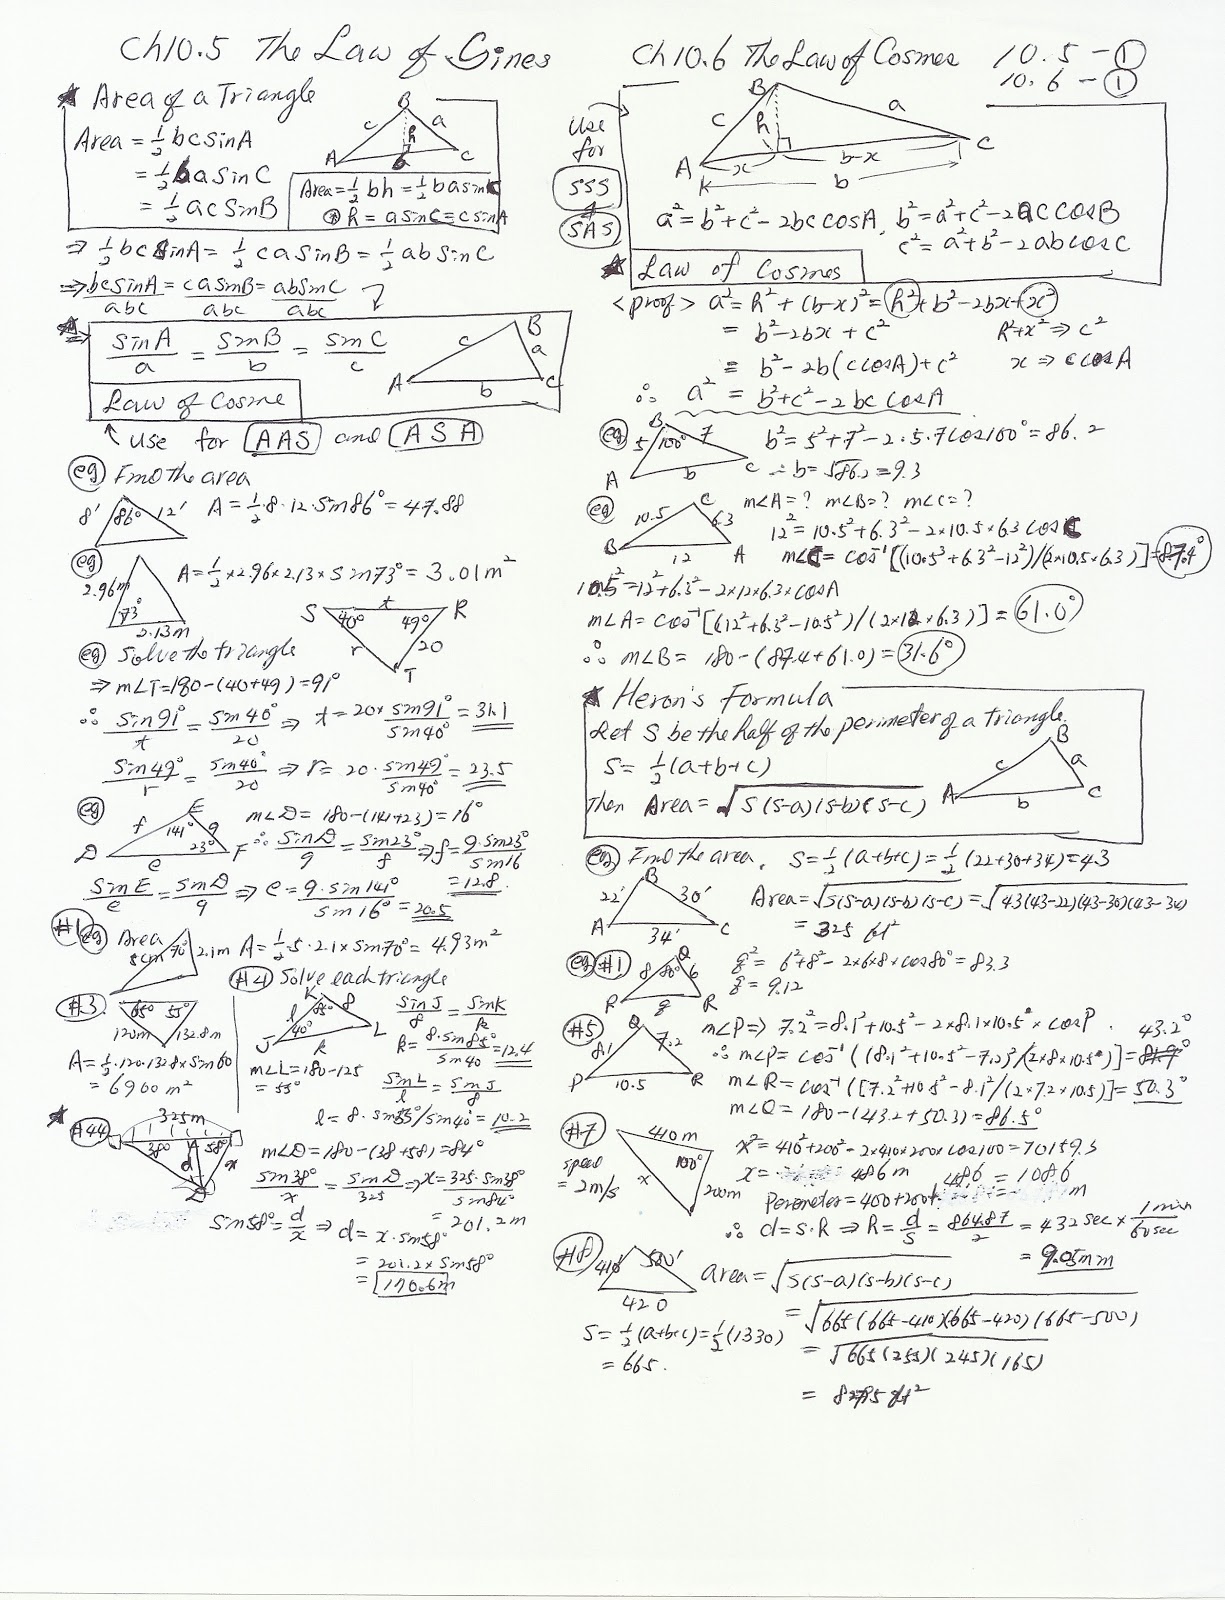 Ch10.5 The Law of Sines
★ Area of a Triangle
Area = ½ bc sin A
= ½ ba sin C
= ½ ac sin B
B
c a
h
A b C
Area = ½ bh = ½ ba sin C
h = a sin C = c sin A
⇒ ½ bc sin A = ½ ca sin B = ½ ab sin C
⇒ bc sin A / abc = ca sin B / abc = ab sin C / abc
sin A / a = sin B / b = sin C / c
B
c a
A b C
Law of Cosine
↑ Use for AAS and ASA
eg Find the area
8' 86° 12'
A = ½·8·12·sin 86° = 47.88
eg
2.96m
73°
2.13m
A = ½ × 2.96 × 2.13 × sin 73° = 3.01 m²
eg Solve the triangle
S t R
40° 49°
r 20
T
⇒ m∠T = 180 − (40+49) = 91°
∴ sin 91° / t = sin 40° / 20 ⇒ t = 20 × sin 91° / sin 40° = 31.1
sin 49° / r = sin 40° / 20 ⇒ r = 20 · sin 49° / sin 40° = 23.5
eg
E
f 141° 9
23°
D e F
m∠D = 180 − (141+23) = 16°
∴ sin D / 9 = sin 23° / f ⇒ f = 9·sin 23° / sin 16
= 12.8
sin E / e = sin D / 9 ⇒ e = 9·sin 141° / sin 16° = 20.5
#1 eg Area
5cm 70° 2.1m
A = ½·5·2.1 × sin 70° = 4.93 m²
#3
65° 55°
120m 132.8m
A = ½·120·132.8 × sin 60
= 6900 m²
#4 Solve each triangle
K
l 85° 8
40°
J k L
m∠L = 180 − 125
= 55°
sin J / 8 = sin K / k
k = 8·sin 85° / sin 40 = 12.4
sin L / l = sin J / 8
l = 8·sin 55° / sin 40° = 10.2
★ #44
325m
38° d 58° x
D
m∠D = 180 − (38+58) = 84°
sin 38° / x = sin D / 325 ⇒ x = 325·sin 38° / sin 84°
= 201.2 m
sin 58° = d / x ⇒ d = x·sin 58°
= 201.2 × sin 58°
= 170.6m
Ch 10.6 The Law of Cosines
10.5 − ①
10.6 − ①
Use
for
SSS
SAS
B
c a
h
A x b−x C
b
a² = b² + c² − 2bc cos A, b² = a² + c² − 2ac cos B
c² = a² + b² − 2ab cos C
★ Law of Cosines
<proof> a² = h² + (b−x)² = h² + b² − 2bx + x²
= b² − 2bx + c² h² + x² ⇒ c²
= b² − 2b(c cos A) + c² x ⇒ c cos A
∴ a² = b² + c² − 2bc cos A
eg
B
5 100° 7
A b C
b² = 5² + 7² − 2·5·7 cos 100° = 86.2
∴ b = √86.2 = 9.3
eg
C
10.5 6.3
B 12 A
m∠A = ? m∠B = ? m∠C = ?
12² = 10.5² + 6.3² − 2 × 10.5 × 6.3 cos C
m∠C = cos⁻¹[(10.5² + 6.3² − 12²)/(2 × 10.5 × 6.3)] = 87.4°
10.5² = 12² + 6.3² − 2 × 12 × 6.3 × cos A
m∠A = cos⁻¹[(12² + 6.3² − 10.5²)/(2 × 12 × 6.3)] = 61.0°
∴ m∠B = 180 − (87.4 + 61.0) = 31.6°
★ Heron's Formula
Let S be the half of the perimeter of a triangle.
S = ½(a+b+c)
B
c a
A b C
Then Area = √S(S−a)(S−b)(S−c)
eg Find the area. S = ½(a+b+c) = ½(22+30+34) = 43
B
22' 30'
A C
34'
Area = √S(S−a)(S−b)(S−c) = √43(43−22)(43−30)(43−34)
= 325 ft²
eg #1
Q
8 80° 6
P q R
q² = 6² + 8² − 2×6×8 × cos 80° = 83.3
q = 9.12
#5
Q
8.1 7.2
P 10.5 R
m∠P ⇒ 7.2² = 8.1² + 10.5² − 2 × 8.1 × 10.5 × cos P.
43.2°
∴ m∠P = cos⁻¹((8.1² + 10.5² − 7.2²)/(2×8×10.5)] =
m∠R = cos⁻¹([7.2² + 10.5² − 8.1²/(2×7.2×10.5)] = 50.3°
m∠Q = 180 − (43.2 + 50.3) = 86.5°
#7
speed
= 2m/s
410 m
100°
x 200m
x² = 410² + 200² − 2×410×200×cos 100 = 70159.3
x = 486 m 486 = 1086
Perimeter = 400+200+ m
∴ d = s·h ⇒ h = d / s = 864.87 / 2 = 432 sec × 1 min / 60 sec
= 9.05 min
#8
410 500'
420
Area = √S(S−a)(S−b)(S−c)
S = ½(a+b+c) = ½(1330)
= 665.
= √665(665−410)(665−420)(665−500)
= √665(255)(245)(165)